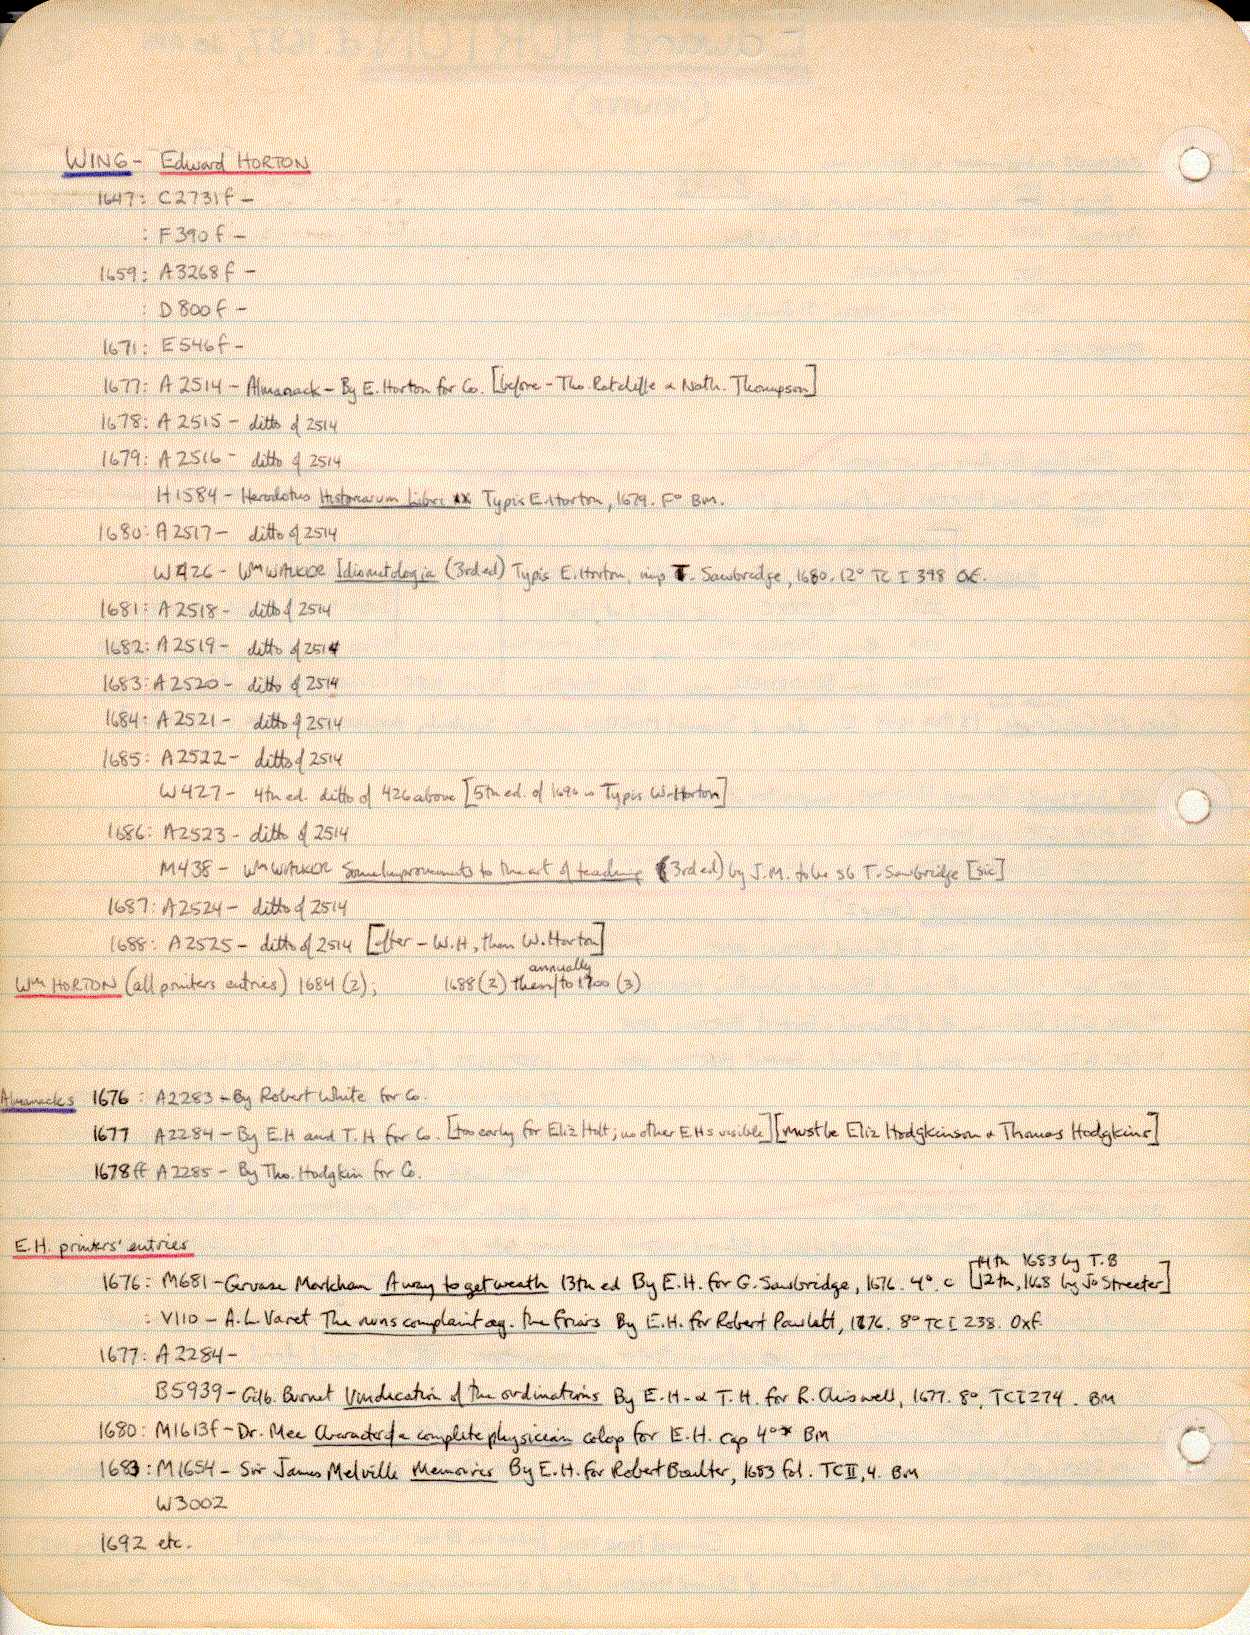 WING - Edward HORTON
1647: C2731f -
: F390f -
1659: A3268f -
: D800f -
1671: E546f -
1677: A2514 - Almanack - By E. Horton for Co. [before - Tho. Ratcliffe & Nath. Thompson]
1678: A2515 - ditto of 2514
1679: A2516 - ditto of 2514
H1584 - Herodotus Historiarum Libri ix Typis E. Horton, 1679. F° BM.
1680: A2517 - ditto of 2514
W426 - Wm WALKER Idiomatologia (3rd ed) Typis E. Horton, imp T. Sawbridge, 1680. 12° TC I 398
1681: A2518 - ditto of 2514
1682: A2519 - ditto of 2514
1683: A2520 - ditto of 2514
1684: A2521 - ditto of 2514
1685: A2522 - ditto of 2514
W427 - 4th ed. ditto of 426 above [5th ed. of 1690 is Typis W. Horton]
1686: A2523 - ditto of 2514
M438 - Wm WALKER Some Improvements to the art of teaching (3rd ed) by J.M. to be sb T. Sawbridge [sic]
1687: A2524 - ditto of 2514
1688: A2525 - ditto of 2514 [after - W.H, then W. Horton]
Wm HORTON (all printers entries) 1684 (2); 1688 (2) then annually to 1700 (3)
Almanacks 1676 : A2283 - By Robert White for Co.
1677 A2284 - By E.H and T.H for Co. [too early for Eliz Holt, no other E Hs visible] [must be Eliz Hodgkinson & Thomas Hodgkins]
1678ff A2285 - By Tho. Hodgkin for Co.
E.H. printers' entries
[14th 1683 by T.B
1676: M681 - Gervase Markham A way to get wealth 13th ed By E.H. for G. Sawbridge, 1676. 4°. C 12th, 1668 by Jo Streeter]
: V110 - A.L. Varet The nuns complaint ag. the friars By E.H. for Robert Pawlett, 1676. 8° TC I 238. Oxf.
1677: A2284 -
B5939 - Gilb. Burnet Vindication of the ordinations By E.H. & T.H. for R. Chiswell, 1677. 8°, TC I 274. BM
1680: M1613f - Dr. Mee Character of a complete physician colop for E.H. cap 4° * BM
1683: M1654 - Sir James Melville Memoires By E.H. for Robert Boulter, 1683 fol. TC II, 4. BM
W3002
1692 etc.